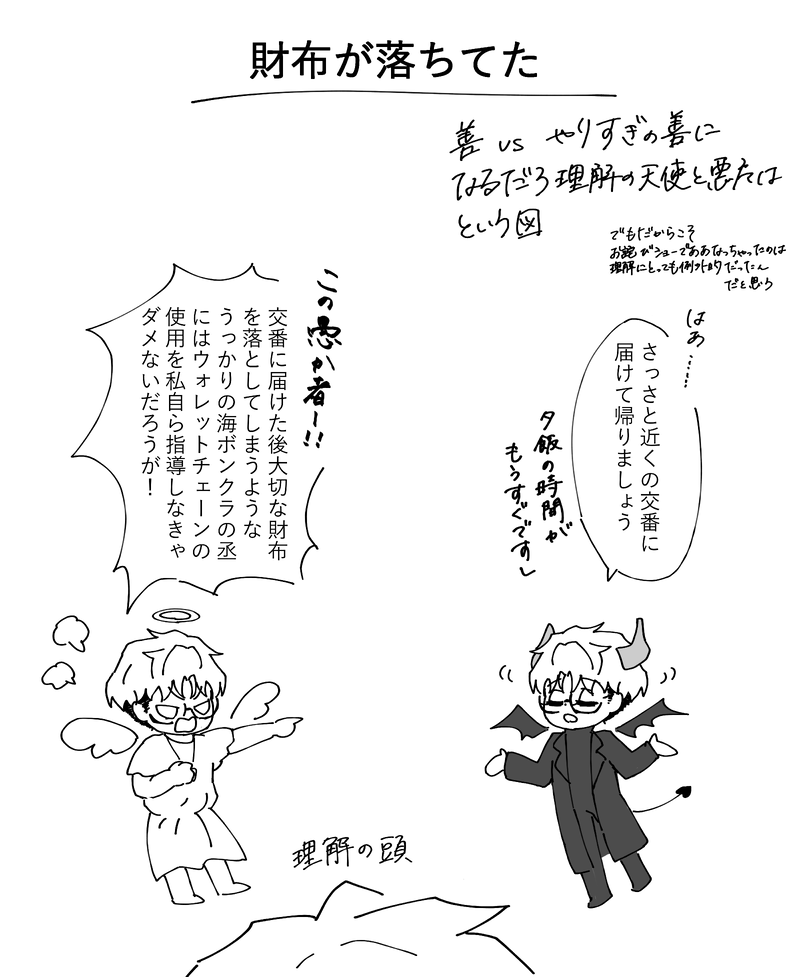 財布が落ちてた
善 vs やりすぎの善に
なるだろ理解の天使と悪魔は
という図
でもだからこそ
お蛇びショーでああなっちゃったのは
理解にとっても例外的だったん
だと思う
はぁ……
さっさと近くの交番に
届けて帰りましょう
夕飯の時間が
もうすぐですし
この愚か者ー!!
交番に届けた後大切な財布
を落としてしまうような
うっかりの海ボンクラの丞
にはウォレットチェーンの
使用を私自ら指導しなきゃ
ダメないだろうが!
理解の頭